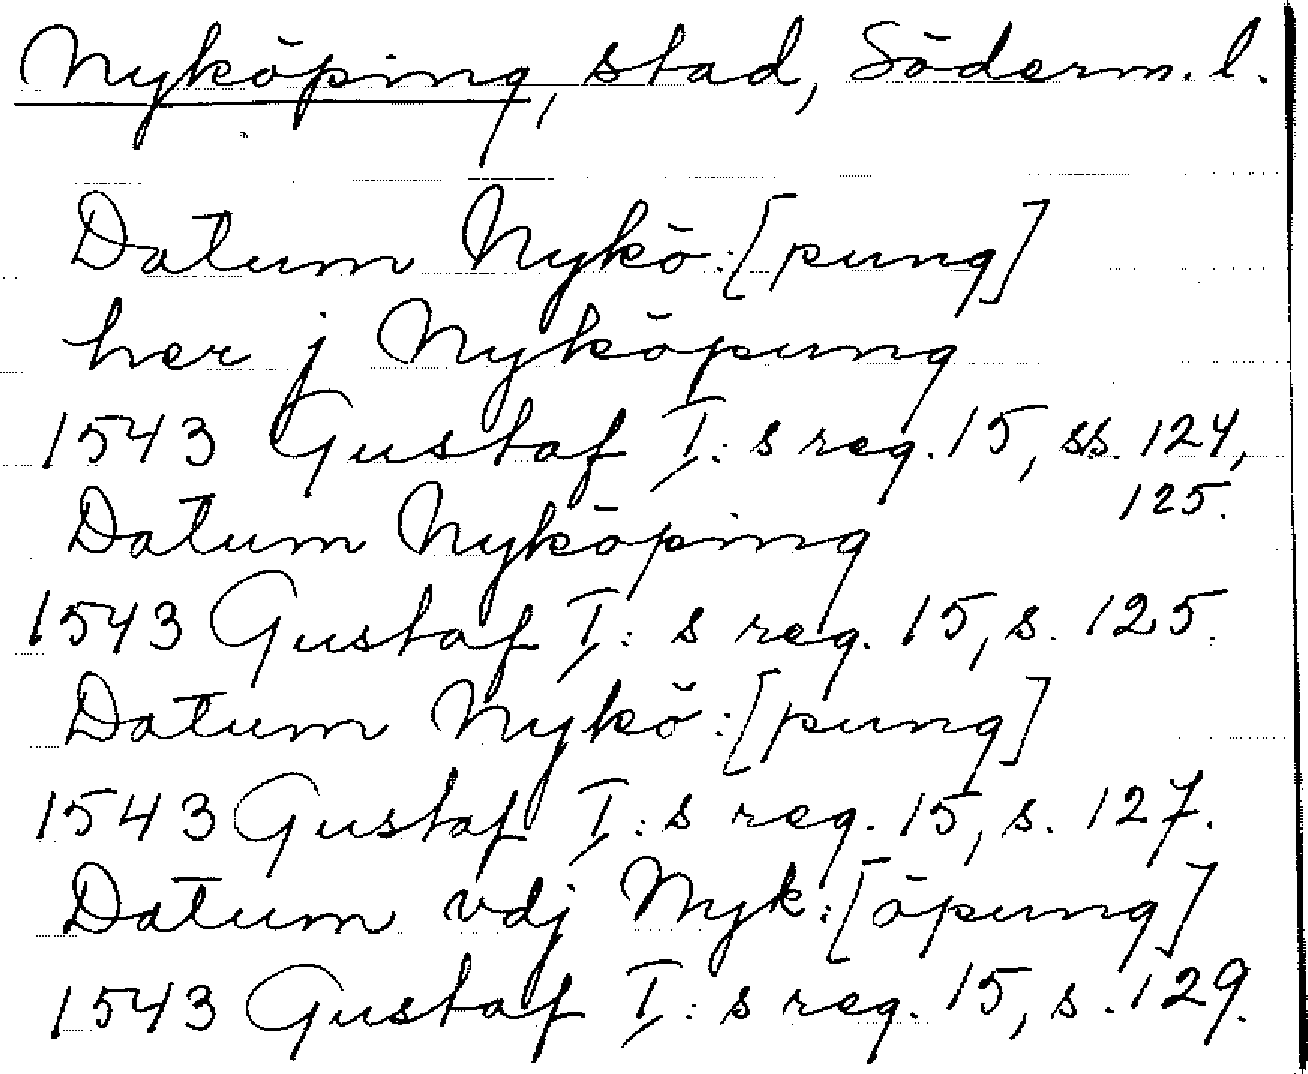 Nyköping, stad, Söderm. l.
Datum Nykö:[pung]
her j Nyköpung
1543 Gustaf I:s reg. 15, ss. 124,
125.
Datum Nyköping
1543 Gustaf I:s reg. 15, s. 125.
Datum Nykö:[pung]
1543 Gustaf I:s reg. 15, s. 127.
Datum vdj Nyk:[öpung]
1543 Gustaf I:s reg. 15, s. 129.